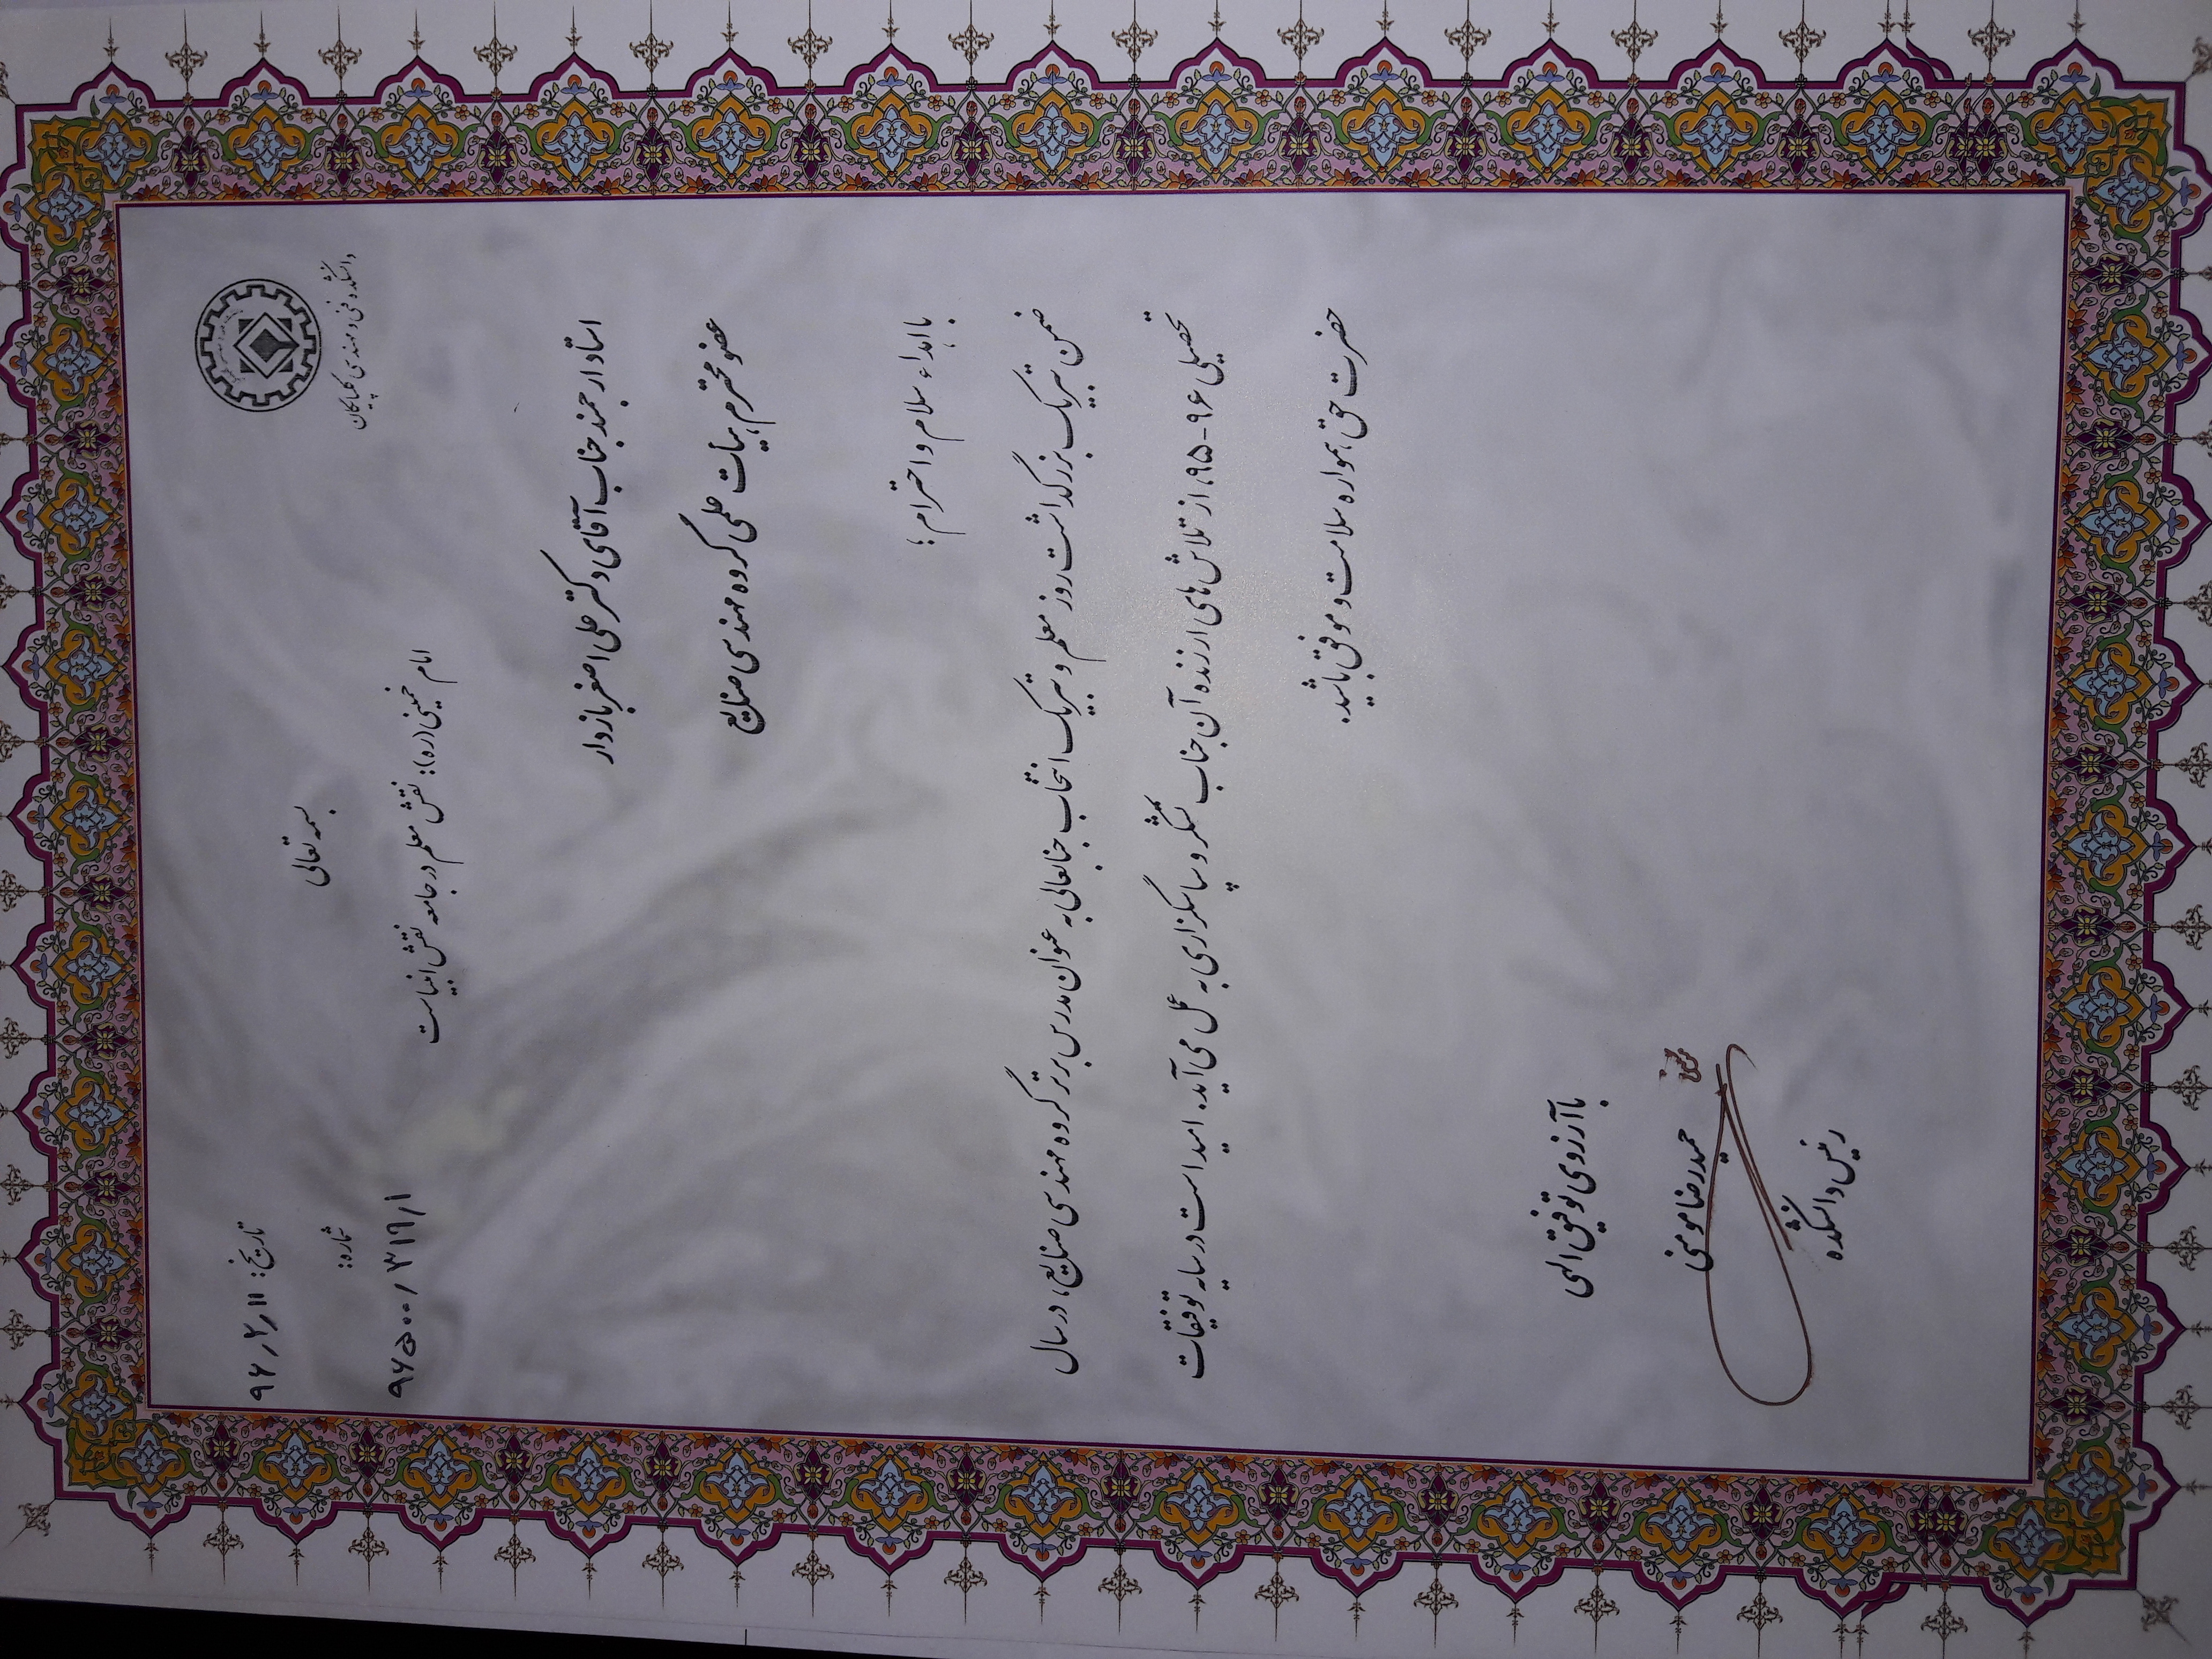 بسمه تعالی
دانشکده فنی و مهندسی گلپایگان
تاریخ: ۹۶/۲/۱۱
شماره:
امام خمینی (ره): نقش معلم در جامعه نقش انبیاست
استاد ارجمند جناب آقای دکتر علی اصغر بازدار
عضو محترم هیات علمی گروه مهندسی صنایع
با اهداء سلام و احترام؛
ضمن تبریک بزرگداشت روز معلم و تبریک انتخاب جنابعالی به عنوان مدرس برتر گروه مهندسی صنایع، در سال
تحصیلی ۹۶-۹۵، از تلاش های ارزنده آن جناب تشکر و سپاسگزاری به عمل می آید. امید است در سایه توفیقات
حضرت حق، همواره سلامت و موفق باشید.
با آرزوی توفیق الهی
حمیدرضا مومنی
رئیس دانشکده